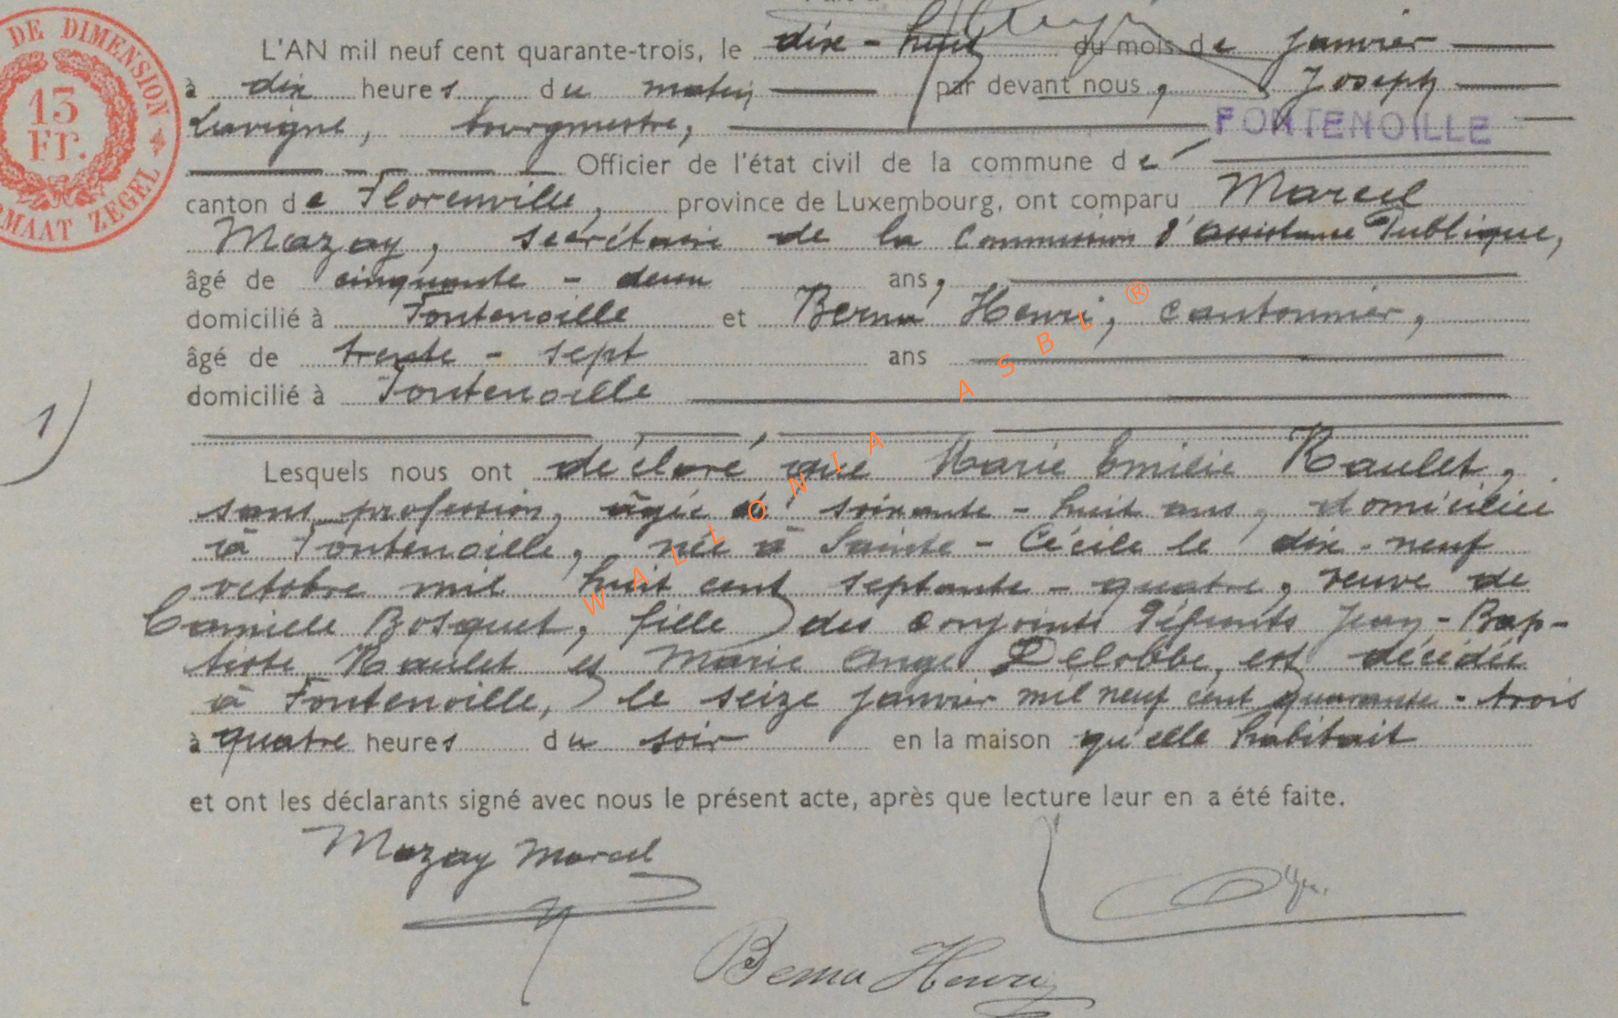 DE DIMENSION
13
Fr.
FORMAAT ZEGEL
L'AN mil neuf cent quarante-trois, le dix-huit du mois de janvier
à dix heures du matin par devant nous, Joseph
Lavigne, bourgmestre, FONTENOILLE
Officier de l'état civil de la commune de
canton de Florenville, province de Luxembourg, ont comparu Marcel
Mazay, secrétaire de la Commission d'Assistance Publique,
âgé de cinquante-deux ans,
domicilié à Fontenoille et Bema Henri, cantonnier,
âgé de trente-sept ans
domicilié à Fontenoille
1)
Lesquels nous ont déclaré que Marie Emilie Raulet,
sans profession, âgée de soixante-huit ans, domiciliée
à Fontenoille, née à Sainte-Cécile le dix-neuf
octobre mil huit cent septante-quatre, veuve de
Camille Bosquet, fille des conjoints défunts Jean-Bap-
tiste Raulet et Marie Ange Delobbe, est décédée
à Fontenoille, le seize janvier mil neuf cent quarante-trois
à quatre heures du soir en la maison qu'elle habitait
et ont les déclarants signé avec nous le présent acte, après que lecture leur en a été faite.
Mazay Marcel
Bema Henri
WALLONIA ASBL ®